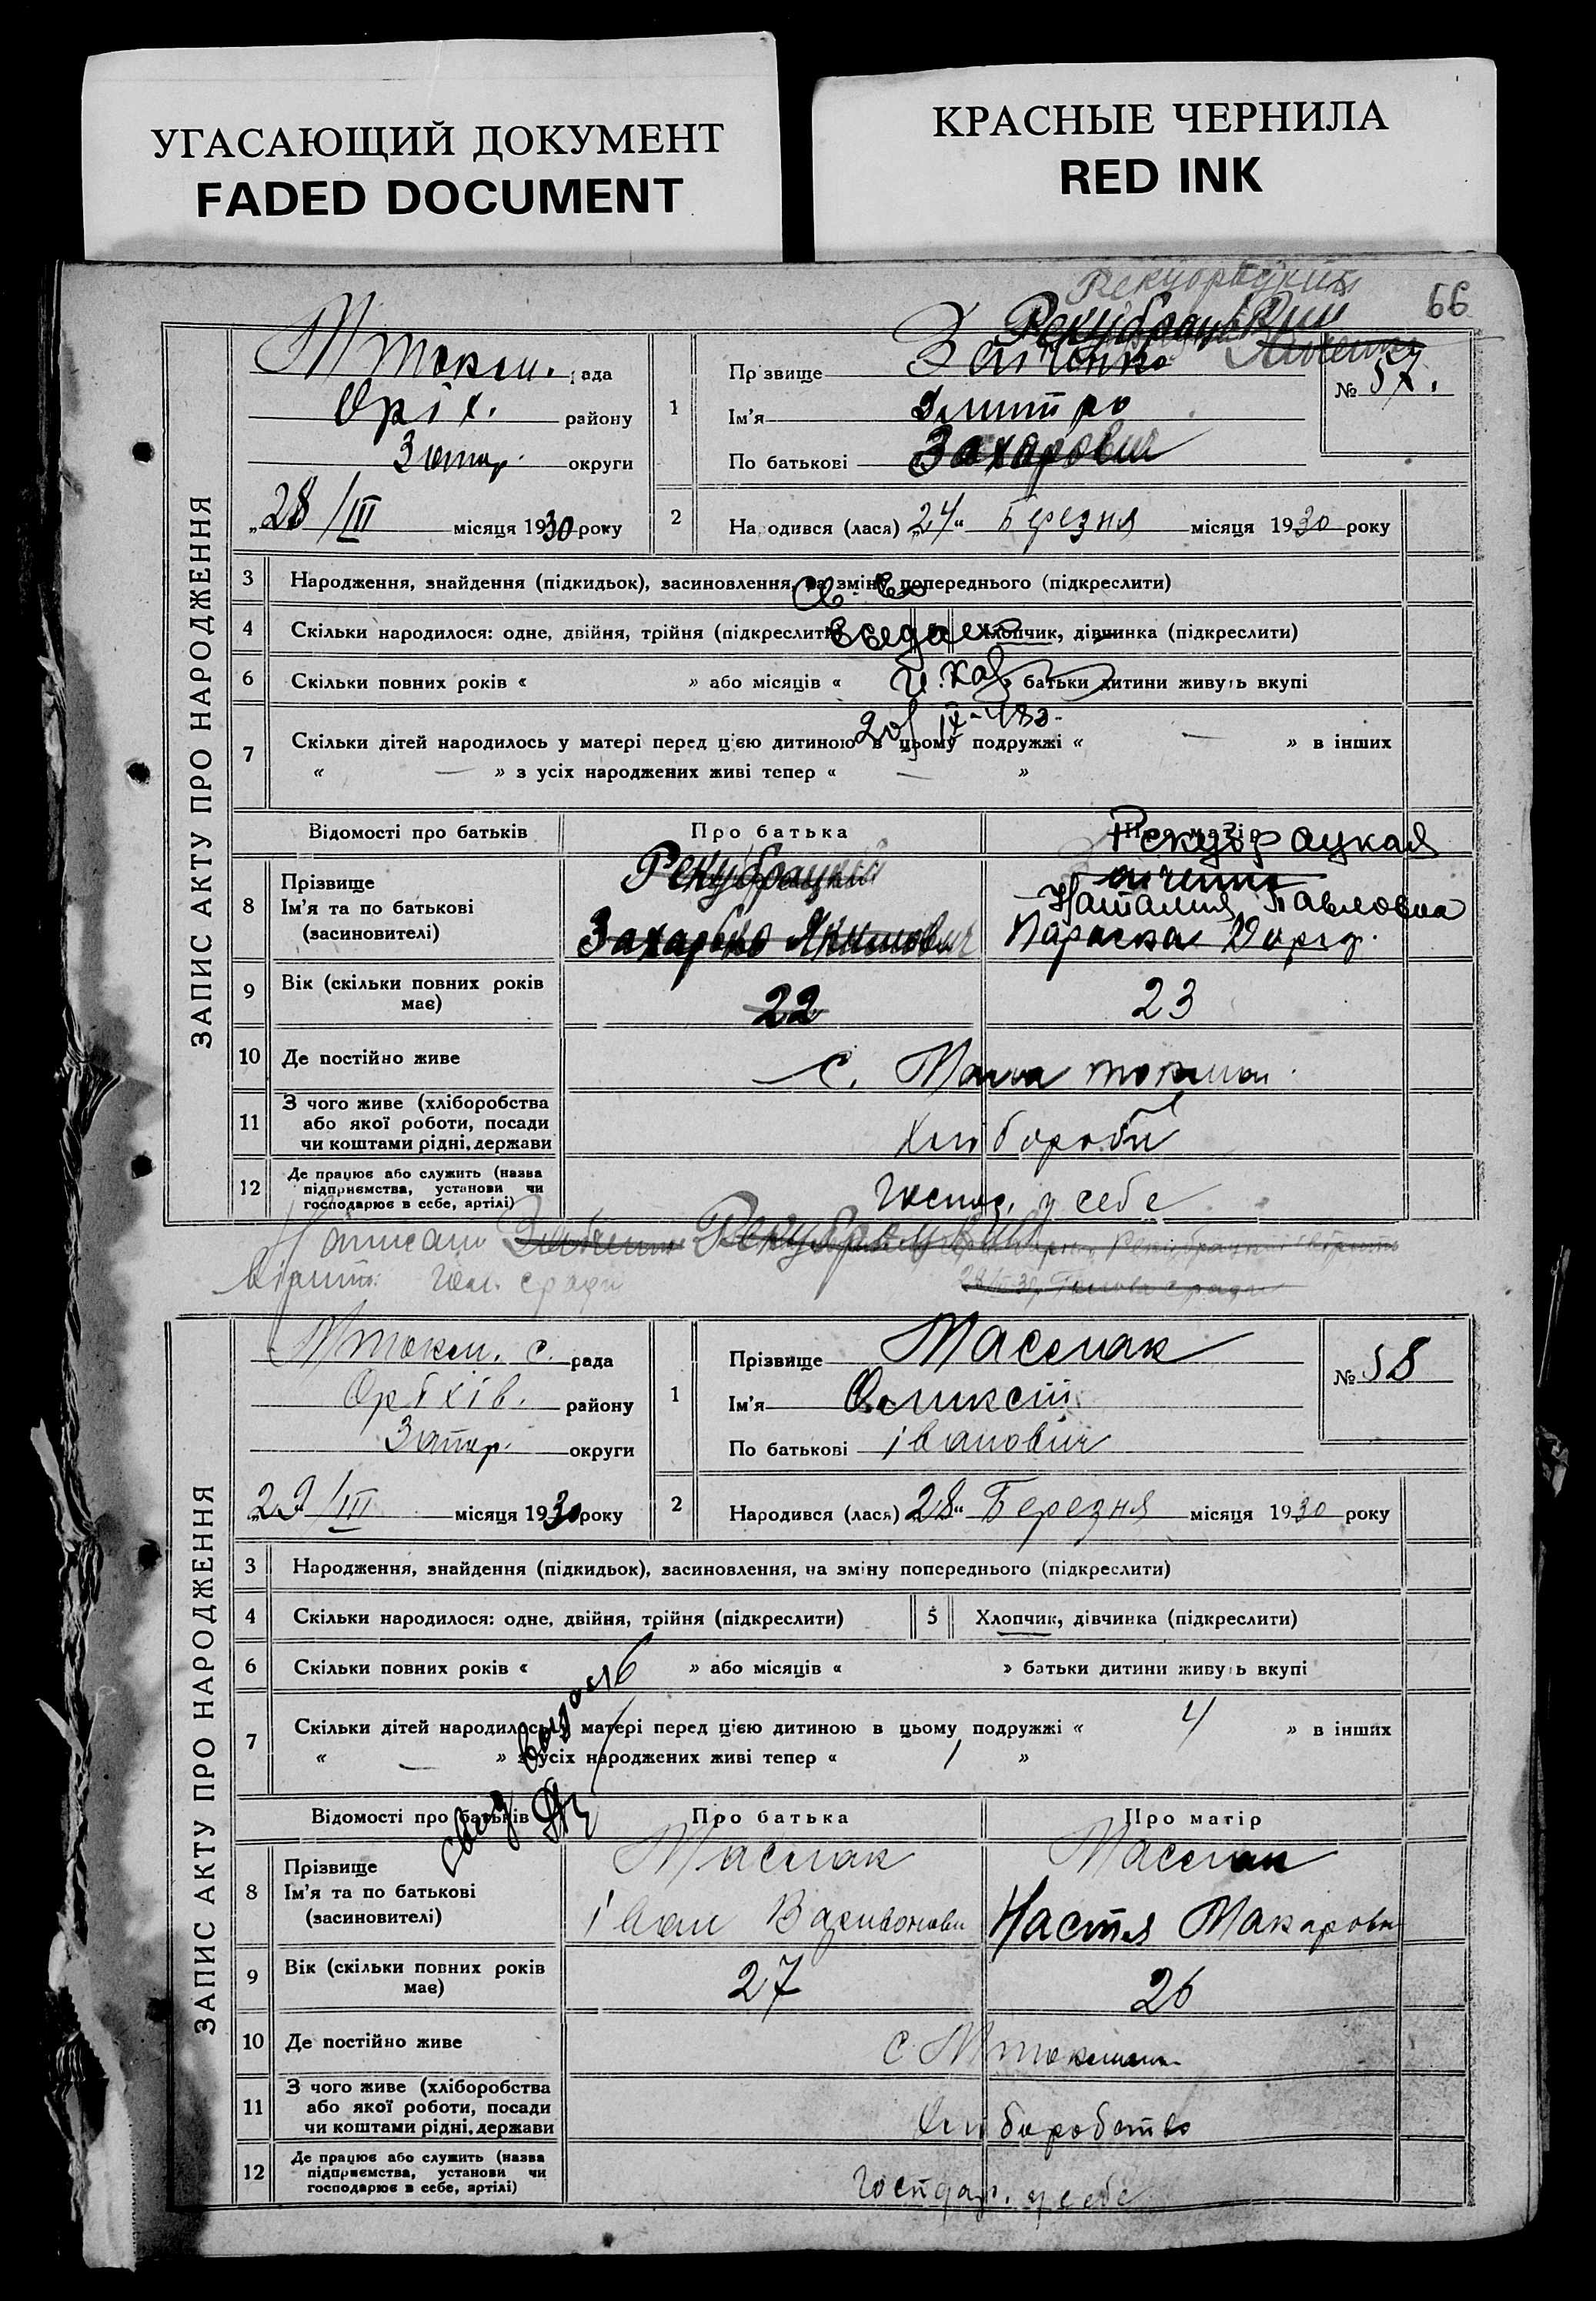 УГАСАЮЩИЙ ДОКУМЕНТ
FADED DOCUMENT
КРАСНЫЕ ЧЕРНИЛА
RED INK
66
Рекубрацький
ЗАПИС АКТУ ПРО НАРОДЖЕННЯ
Мтокм. рада
Оріх. району
Запор. округи
„28/III місяця 1930 року
1
Прізвище
Ім'я Дмитро
По батькові Захарович
№ 57.
2 Народився (лася) „24“ Березня місяця 1930 року
3 Народження, знайдення (підкидьок), засиновлення, на зміну попереднього (підкреслити)
4 Скільки народилося: одне, двійня, трійня (підкреслити) Хлопчик, дівчинка (підкреслити)
6 Скільки повних років « » або місяців « » батьки дитини живуть вкупі
20/IX-43
7 Скільки дітей народилось у матері перед цією дитиною в цьому подружжі « — » в інших
« — » з усіх народжених живі тепер « — »
Відомості про батьків Про батька Про матір
8 Прізвище
Ім'я та по батькові
(засиновителі)
Рекубрацкий
Захарко Якимович
Рекубрацкая
Наталия Павловна
Параска
9 Вік (скільки повних років має) 22 23
10 Де постійно живе с. Мала токмач
11 З чого живе (хліборобства або якої роботи, посади чи коштами рідні, держави Хлібороби
12 Де працює або служить (назва підприємства, установи чи господарює в себе, артілі) Госпо. у себе
Рекубрацький
ЗАПИС АКТУ ПРО НАРОДЖЕННЯ
Мтокм. с. рада
Оріхів. району
Запор. округи
„29/III місяця 1930 року
1
Прізвище Маслак
Ім'я Оликсій
По батькові іванович
№ 58
2 Народився (лася) „28“ Березня місяця 1930 року
3 Народження, знайдення (підкидьок), засиновлення, на зміну попереднього (підкреслити)
4 Скільки народилося: одне, двійня, трійня (підкреслити) 5 Хлопчик, дівчинка (підкреслити)
6 Скільки повних років « » або місяців « » батьки дитини живуть вкупі
7 Скільки дітей народилось у матері перед цією дитиною в цьому подружжі « 4 » в інших
« — » з усіх народжених живі тепер « 1 »
Відомості про батьків Про батька Про матір
8 Прізвище
Ім'я та по батькові
(засиновителі)
Маслак
іван
Маслак
Настя Макаровн
9 Вік (скільки повних років має) 27 26
10 Де постійно живе с. Мтокмачка
11 З чого живе (хліборобства або якої роботи, посади чи коштами рідні, держави Хліборобство
12 Де працює або служить (назва підприємства, установи чи господарює в себе, артілі) Господар. у себе